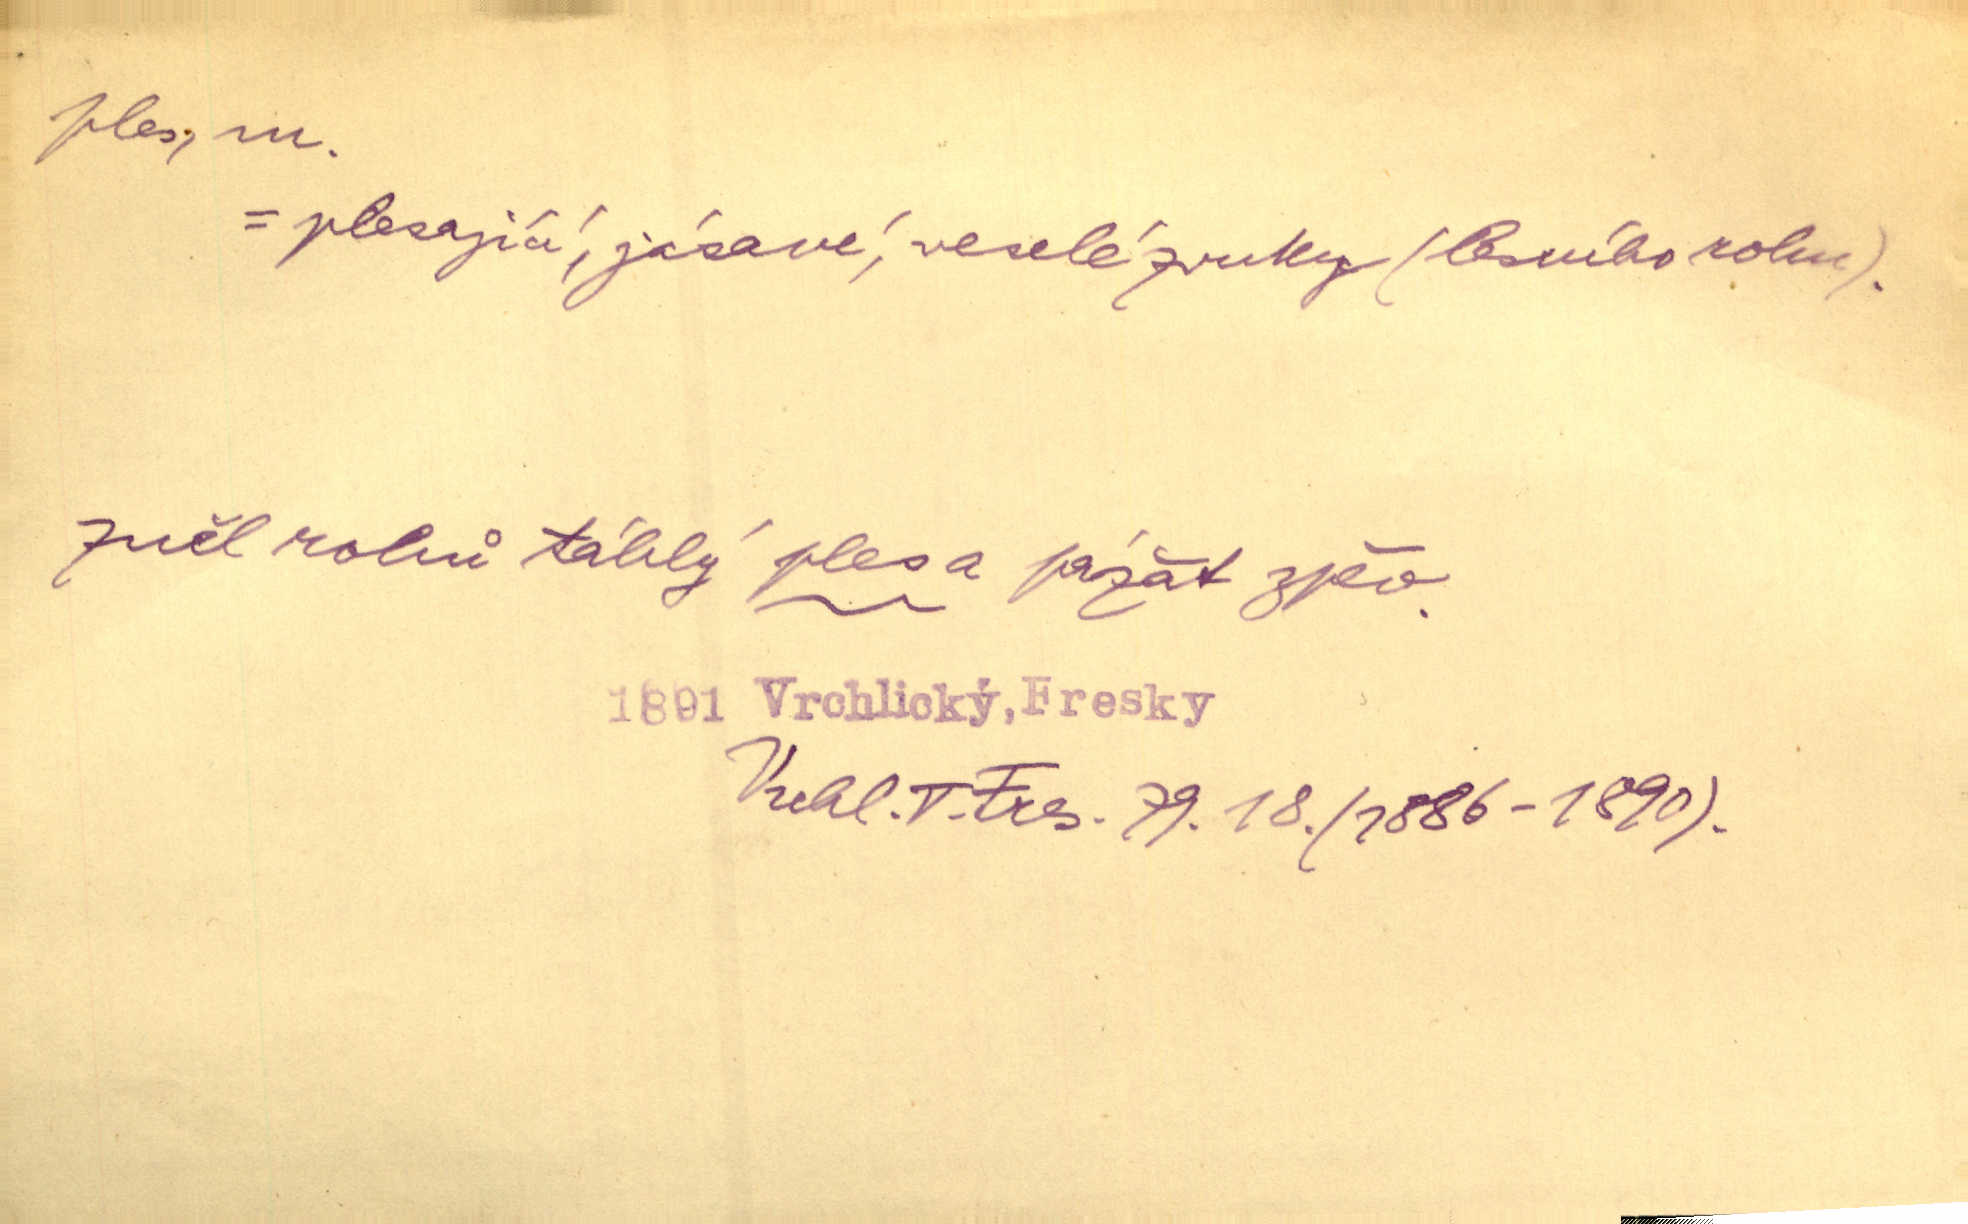 ples, m.
= plesající, jásavé, veselé zvuky (lesního rohu).
zněl rohů táhlý ples a pážat zpěv.
1891 Vrchlický, Fresky
Vrchl. T. Fres. 79. 18. (1886-1890).